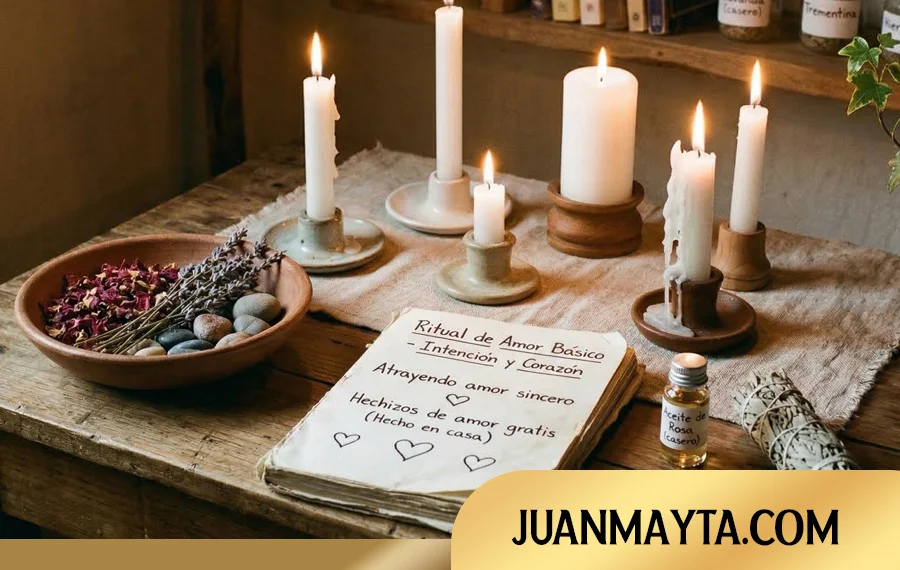 (casero)
Trementina
Ritual de Amor Básico
- Intención y Corazón
Atrayendo amor sincero
Hechizos de amor gratis
(Hecho en casa)
Aceite de
Rosa
(casero)
JUANMAYTA.COM